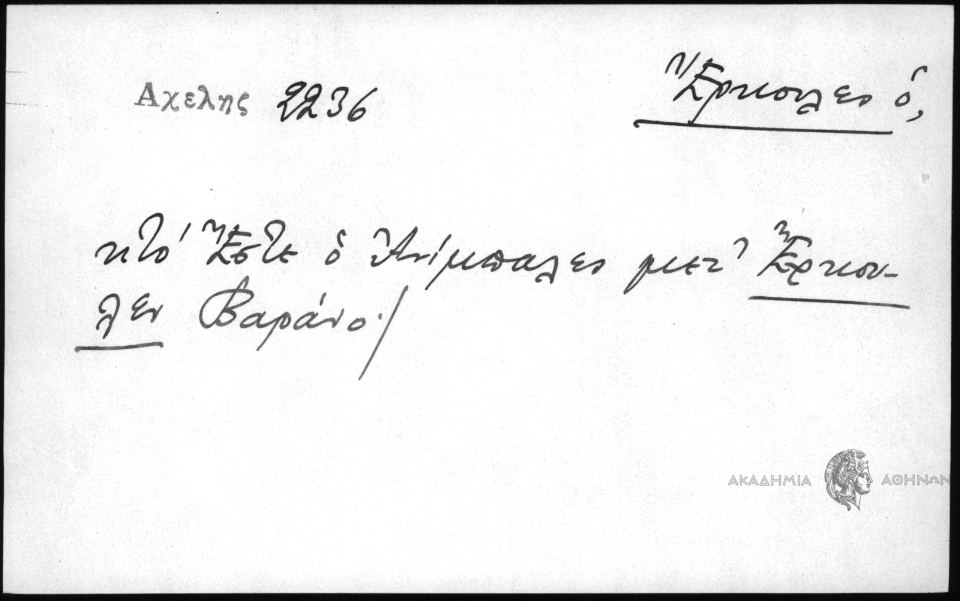 Αχελης 2236
Ἔρκουλες ὁ,
Ἔστε ὁ Ἀνίμπαλες μετ' Ἔρκου-
λεν Βαράνο./
ΑΚΑΔΗΜΙΑ ΑΘΗΝΩΝ